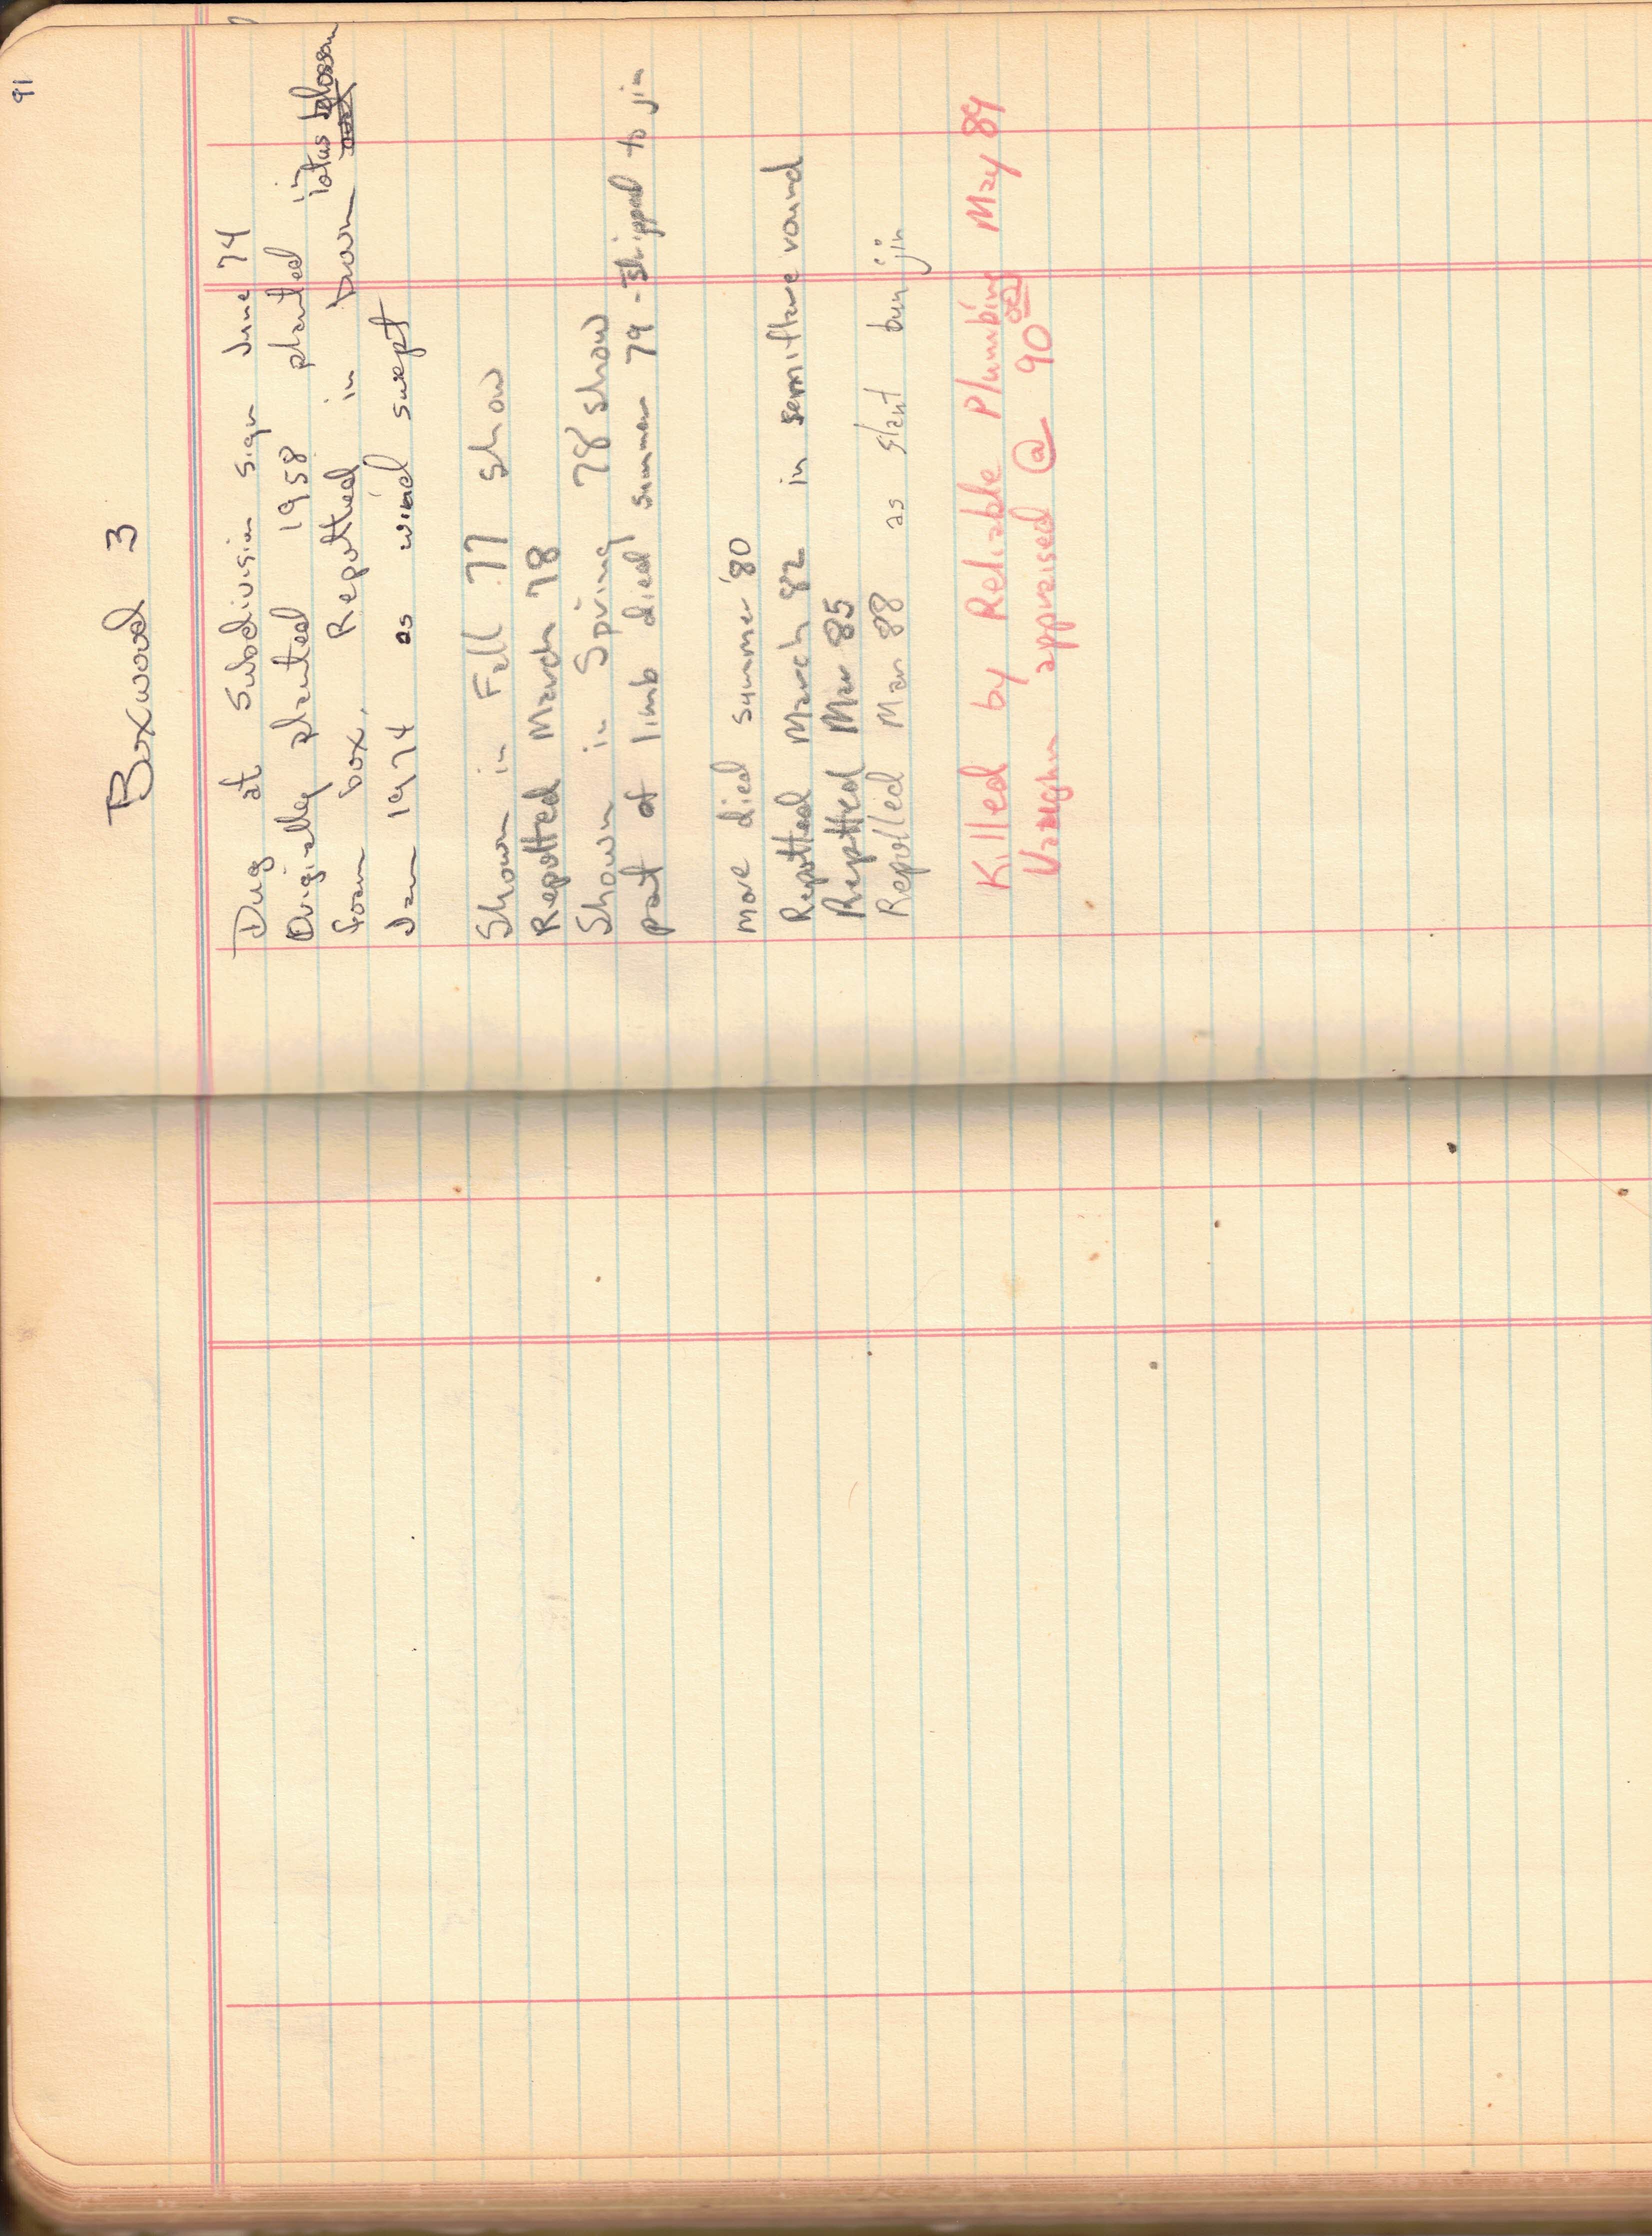 91
Boxwood 3
Dug at Subdivision sign June 74
Origially planted 1958 planted in
lotus blossom
foam box. Repotted in brown
Jan 1974 as wind swept
Shown in Fall 77 show
Repotted March 78
Shown in Spring 78 show
part of limb died summer 79 - stripped to jin
more died summer '80
Repotted March 82 in semiflare round
Reptted Mar 85
Repotted Mar 88 as slant bunjin
Killed by Reliable Plumbing May 89
Vaughn appraised @ 90 00